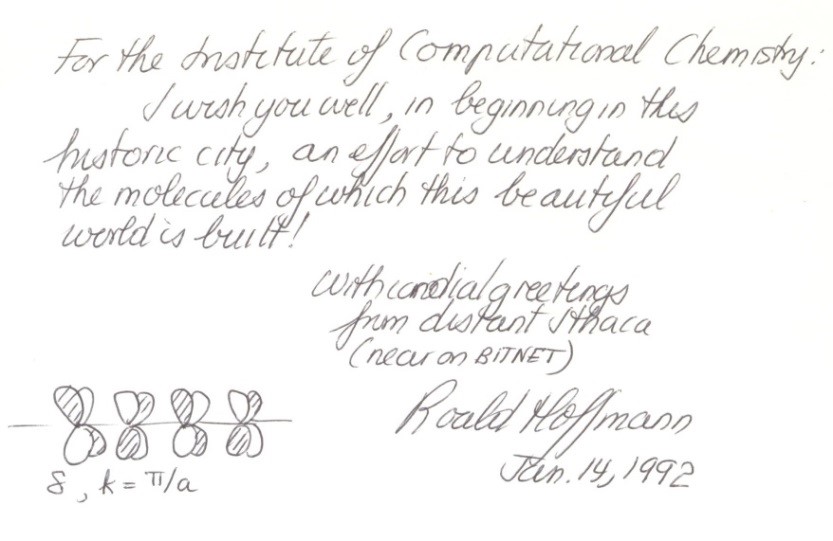 For the Institute of Computational Chemistry:
I wish you well, in beginning in this
historic city, an effort to understand
the molecules of which this beautiful
world is built!
With cordial greetings
from distant Ithaca
(near on BITNET)
Roald Hoffmann
Jan. 14, 1992
δ, k = π/a